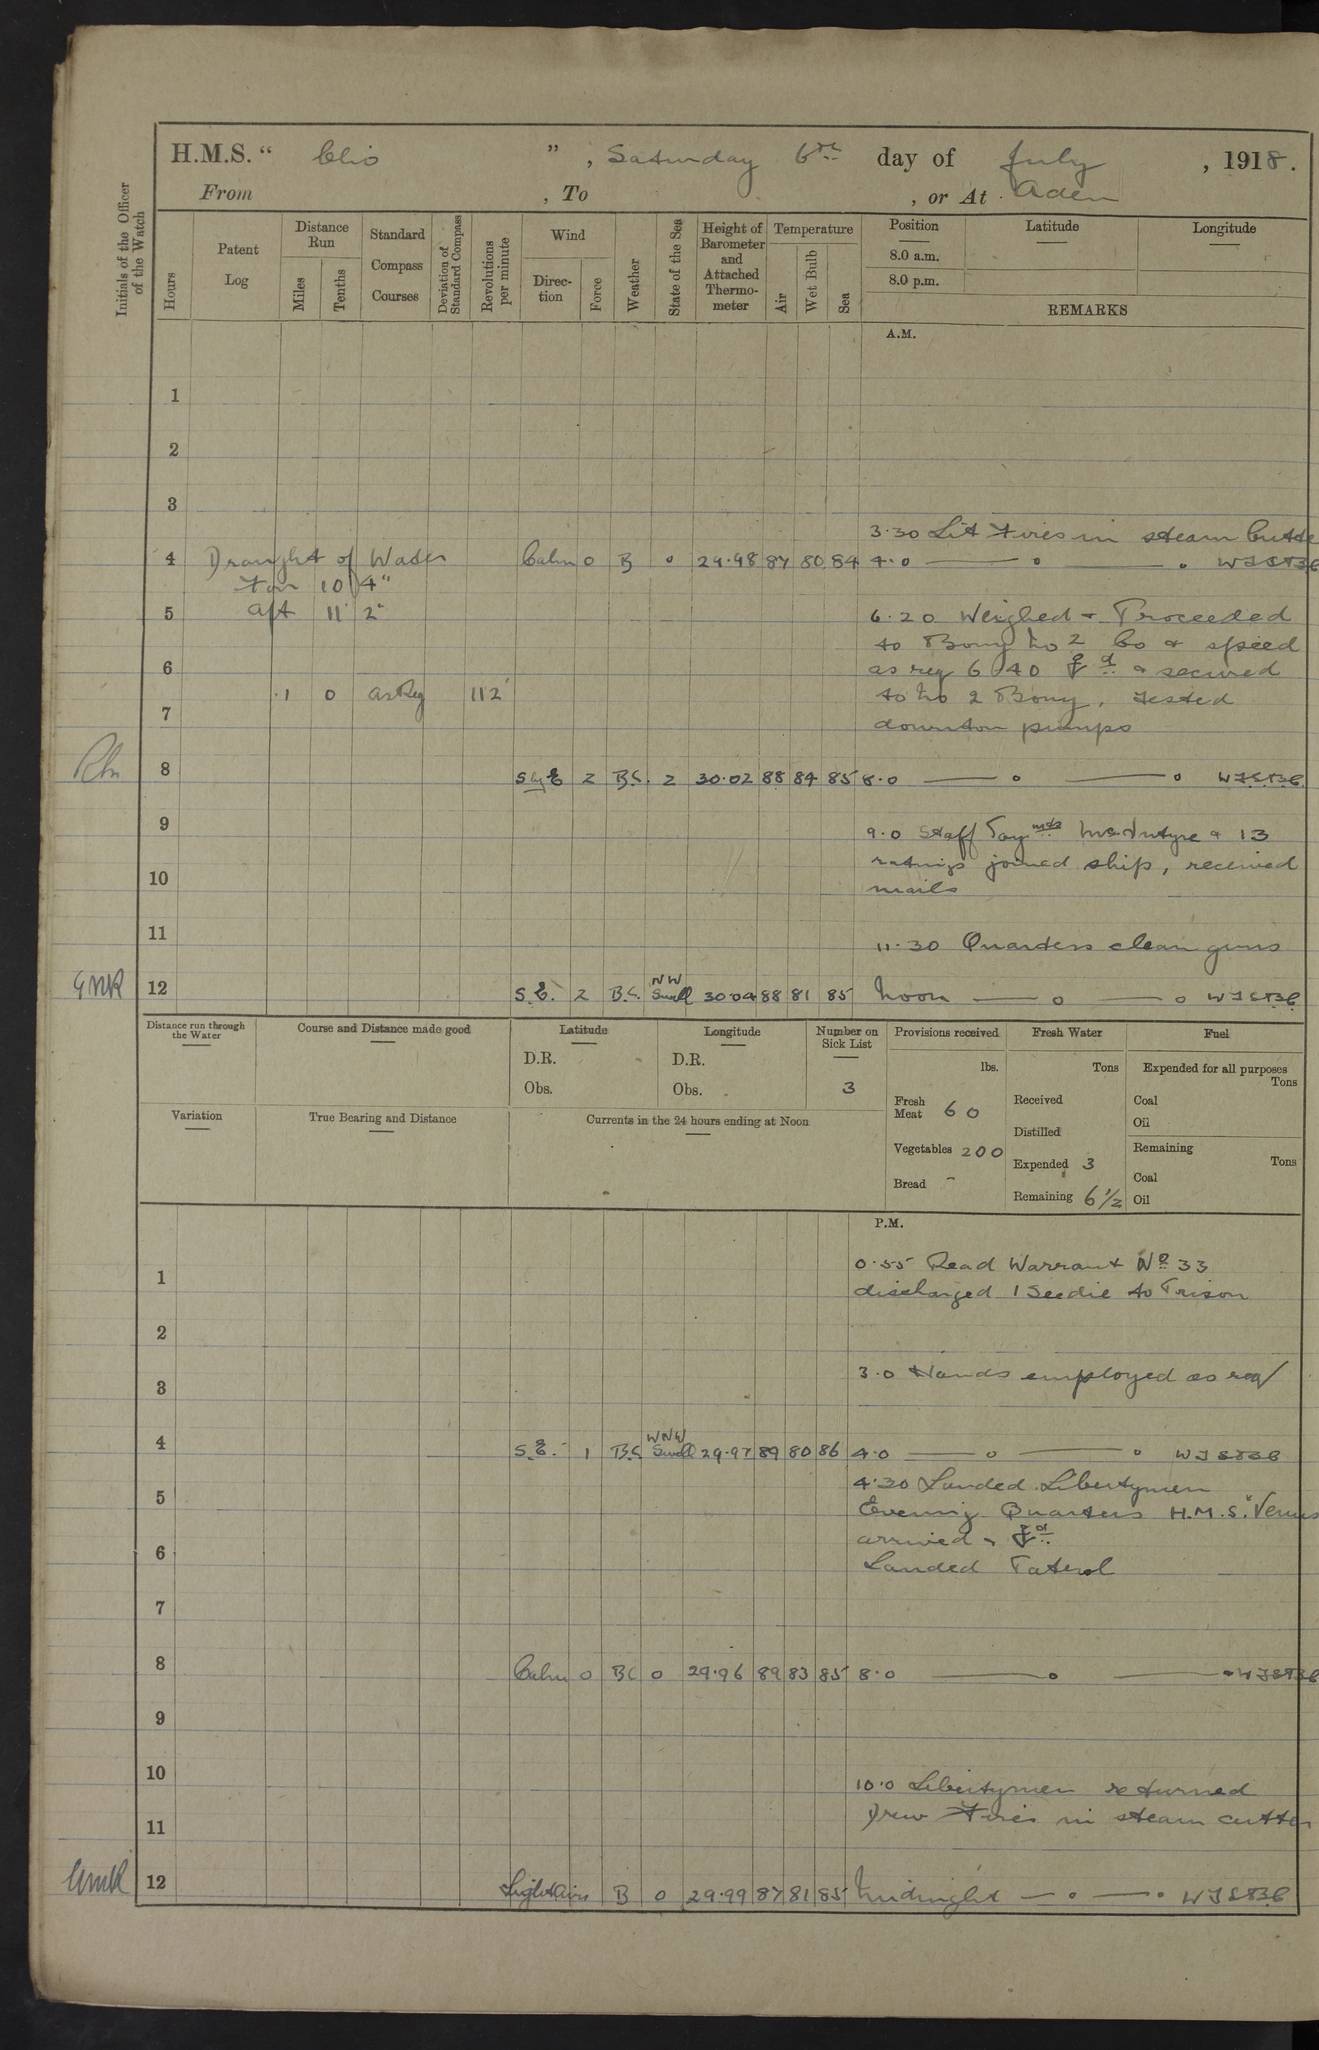 H.M.S. " Clio ", Saturday 6th day of July, 1918.
From , To , or At Aden
Initials of the Officer of the Watch
Hours
Patent Log
Distance Run
Miles
Tenths
Standard Compass Courses
Deviation of Standard Compass
Revolutions per minute
Wind
Direction
Force
Weather
State of the Sea
Height of Barometer and Attached Thermometer
Temperature
Air
Wet Bulb
Sea
Position
8.0 a.m.
8.0 p.m.
Latitude
Longitude
REMARKS
A.M.
1
2
3
3.30 Lit Fires in steam Cutte
4 Draught of Water Calm 0 B 0 29.98 87 80 84 4.0 — o — o
For 10 4"
aft 11' 2"
5 6.20 Weighed & Proceeded
to Bouy No 2 Co & speed
6 as req 6.40 & secured
1 0 as Req 112 to No 2 Bouy, tested
7 downton pumps
8 S by E 2 B.C. 2 30.02 88 84 85 8.0 — o — o
9 9.0 Staff Paymstr McIntyre & 13
ratings joined ship, received
10 mails
11 11.30 Quarters clean guns
NW
GMR 12 S.E. 2 B.C. Swell 30.04 88 81 85 Noon — o — o
Distance run through the Water
Course and Distance made good
Latitude
D.R.
Obs.
Longitude
D.R.
Obs.
Number on Sick List
3
Provisions received
lbs.
Fresh Meat 60
Vegetables 200
Bread -
Fresh Water
Tons
Received
Distilled
Expended 3
Remaining 6 1/2
Fuel
Expended for all purposes
Tons
Coal
Oil
Remaining
Tons
Coal
Oil
Variation
True Bearing and Distance
Currents in the 24 hours ending at Noon
P.M.
0.55 Read Warrant No 33
1 discharged 1 Seedie to Prison
2
3 3.0 Hands employed as req/
WNW
4 S.E. 1 B.C. Swell 29.97 89 80 86 4.0 — o — o
4.30 Landed Libertymen
5 Evening Quarters H.M.S. "Venus
arrived &
6 Landed Patrol
7
8 Calm 0 BC 0 29.96 89 83 85 8.0 — o — o
9
10 10.0 Libertymen returned
11 Drew Fires in steam cutter
GMR 12 Light Airs B 0 29.99 87 81 85 Midnight — o — o